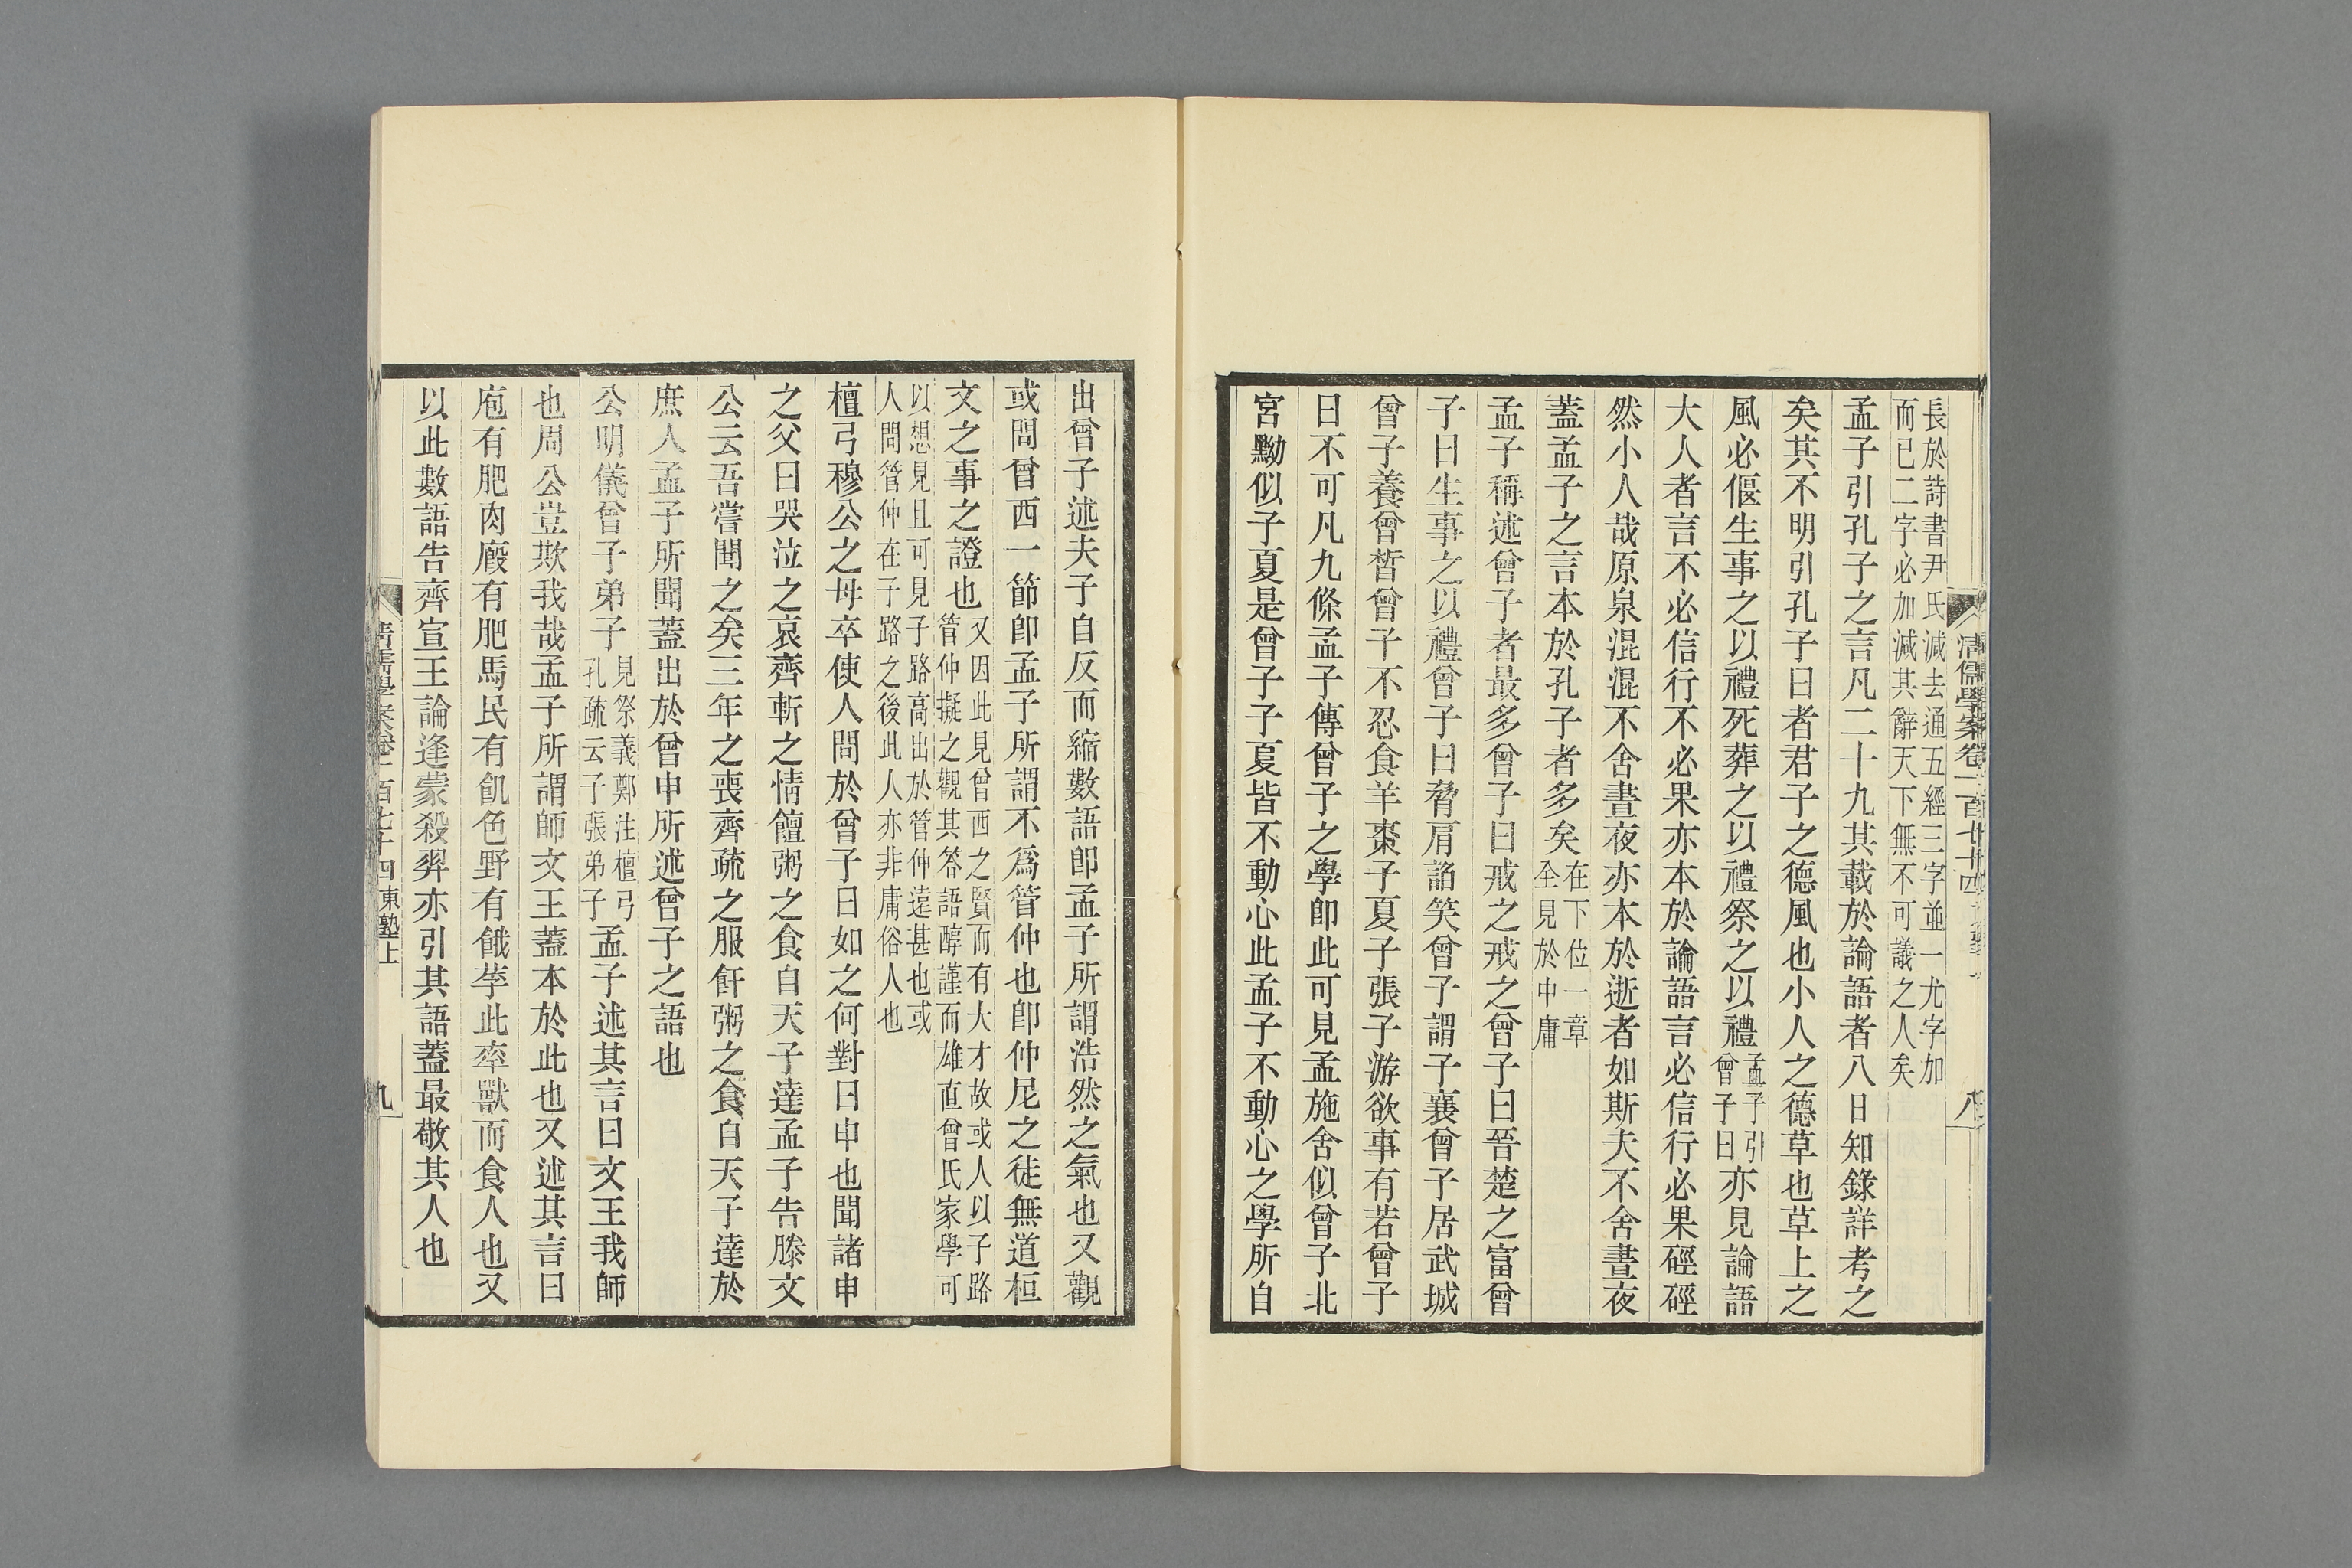 長於詩書尹氏減去通五經三字並一尤字加
而已二字必加減其辭天下無不可議之人矣
孟子引孔子之言凡二十九其載於論語者八日知錄詳考之
矣其不明引孔子曰者君子之德風也小人之德草也草上之
風必偃生事之以禮死葬之以禮祭之以禮孟子引曾子曰亦見論語
大人者言不必信行不必果亦本於論語言必信行必果硜硜
然小人哉原泉混混不舍晝夜亦本於逝者如斯夫不舍晝夜
蓋孟子之言本於孔子者多矣在下位一章全見於中庸
孟子稱述曾子者最多曾子曰戒之戒之曾子曰晉楚之富曾
子曰生事之以禮曾子曰脅肩諂笑曾子謂子襄曾子居武城
曾子養曾皙曾子不忍食羊棗子夏子張子游欲事有若曾子
曰不可凡九條孟子傳曾子之學卽此可見孟施舍似曾子北
宮黝似子夏是曾子子夏皆不動心此孟子不動心之學所自
清儒學案卷一百七十四
八
出曾子述夫子自反而縮數語卽孟子所謂浩然之氣也又觀
或問曾西一節卽孟子所謂不爲管仲也卽仲尼之徒無道桓
文之事之證也又因此見曾西之賢而有大才故或人以子路管仲擬之觀其答語醇謹而雄直曾氏家學可
以想見且可見子路高出於管仲遠甚也或人問管仲在子路之後此人亦非庸俗人也
檀弓穆公之母卒使人問於曾子曰如之何對曰申也聞諸申
之父曰哭泣之哀齊斬之情饘粥之食自天子達孟子告滕文
公云吾嘗聞之矣三年之喪齊疏之服飦粥之食自天子達於
庶人孟子所聞蓋出於曾申所述曾子之語也
公明儀曾子弟子見祭義鄭注檀弓孔疏云子張弟子孟子述其言曰文王我師
也周公豈欺我哉孟子所謂師文王蓋本於此也又述其言曰
庖有肥肉廄有肥馬民有飢色野有餓莩此率獸而食人也又
以此數語告齊宣王論逄蒙殺羿亦引其語蓋最敬其人也
清儒學案卷一百七十四 東塾上
九